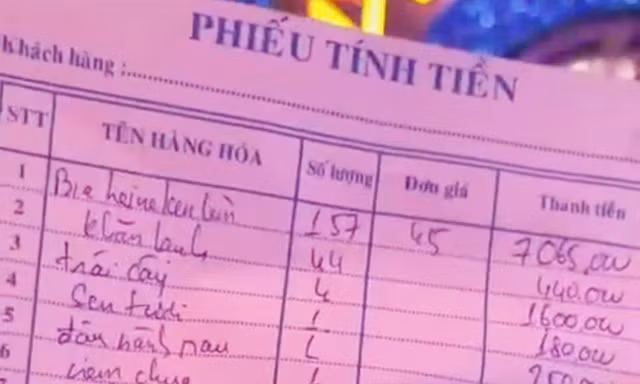 PHIẾU TÍNH TIỀN
Khách hàng :
STT TÊN HÀNG HÓA Số lượng Đơn giá Thanh tiền
1 Bia heineken lùn 157 45 7065,000
2 khăn lạnh 44 440.000
3 trái cây 4 1600.000
4 Sen tươi 1 180.000
5 đậu nành rau 1
6